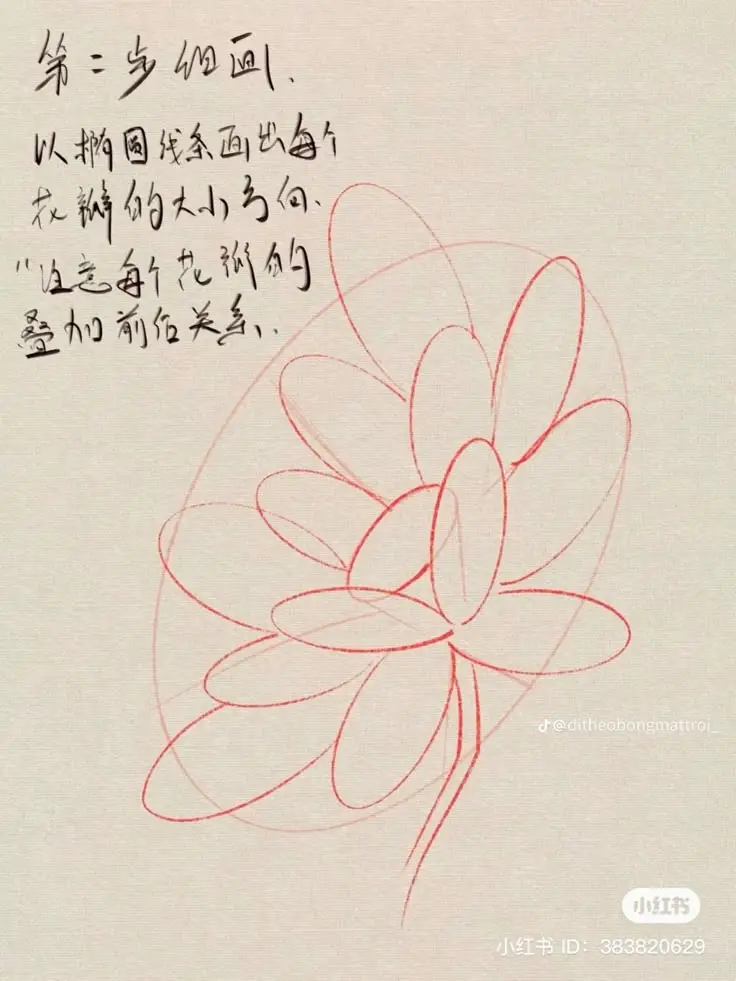 第二步细画.
以椭圆线条画出每个
花瓣的大小方向.
"注意每个花瓣的
叠加前后关系.
@ditheobongmattroi_
小红书
小红书 ID: 383820629